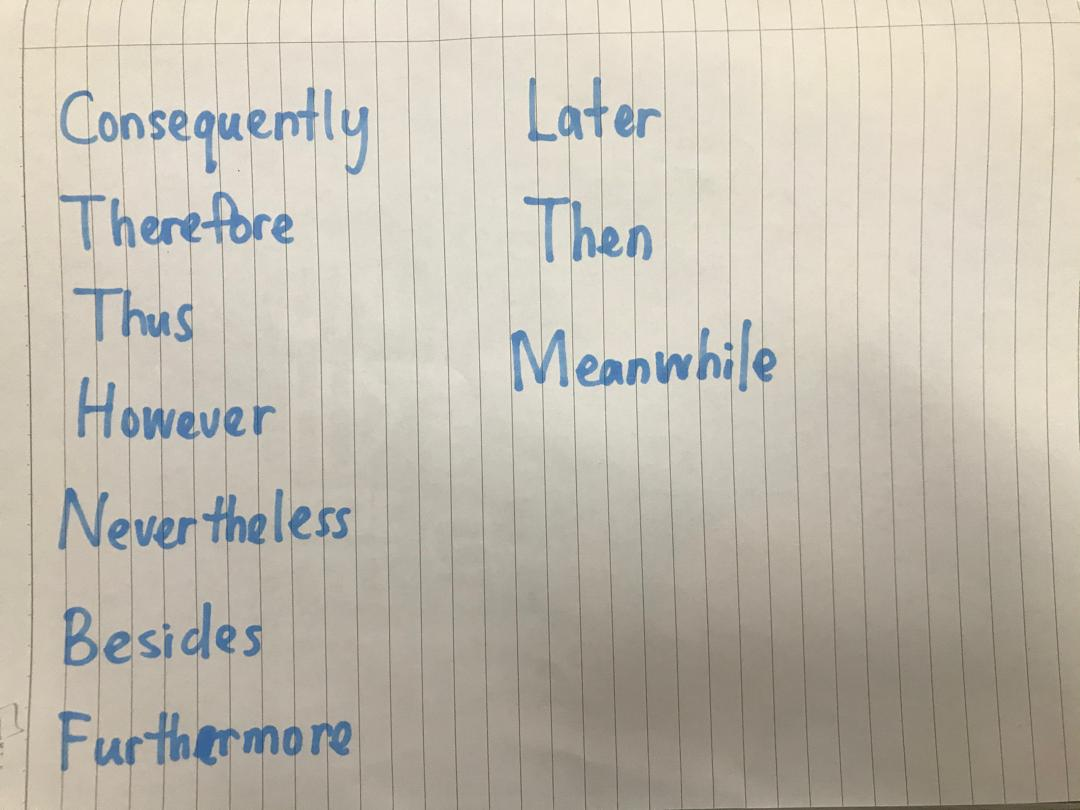 Consequently
Therefore
Thus
However
Nevertheless
Besides
Furthermore
Later
Then
Meanwhile